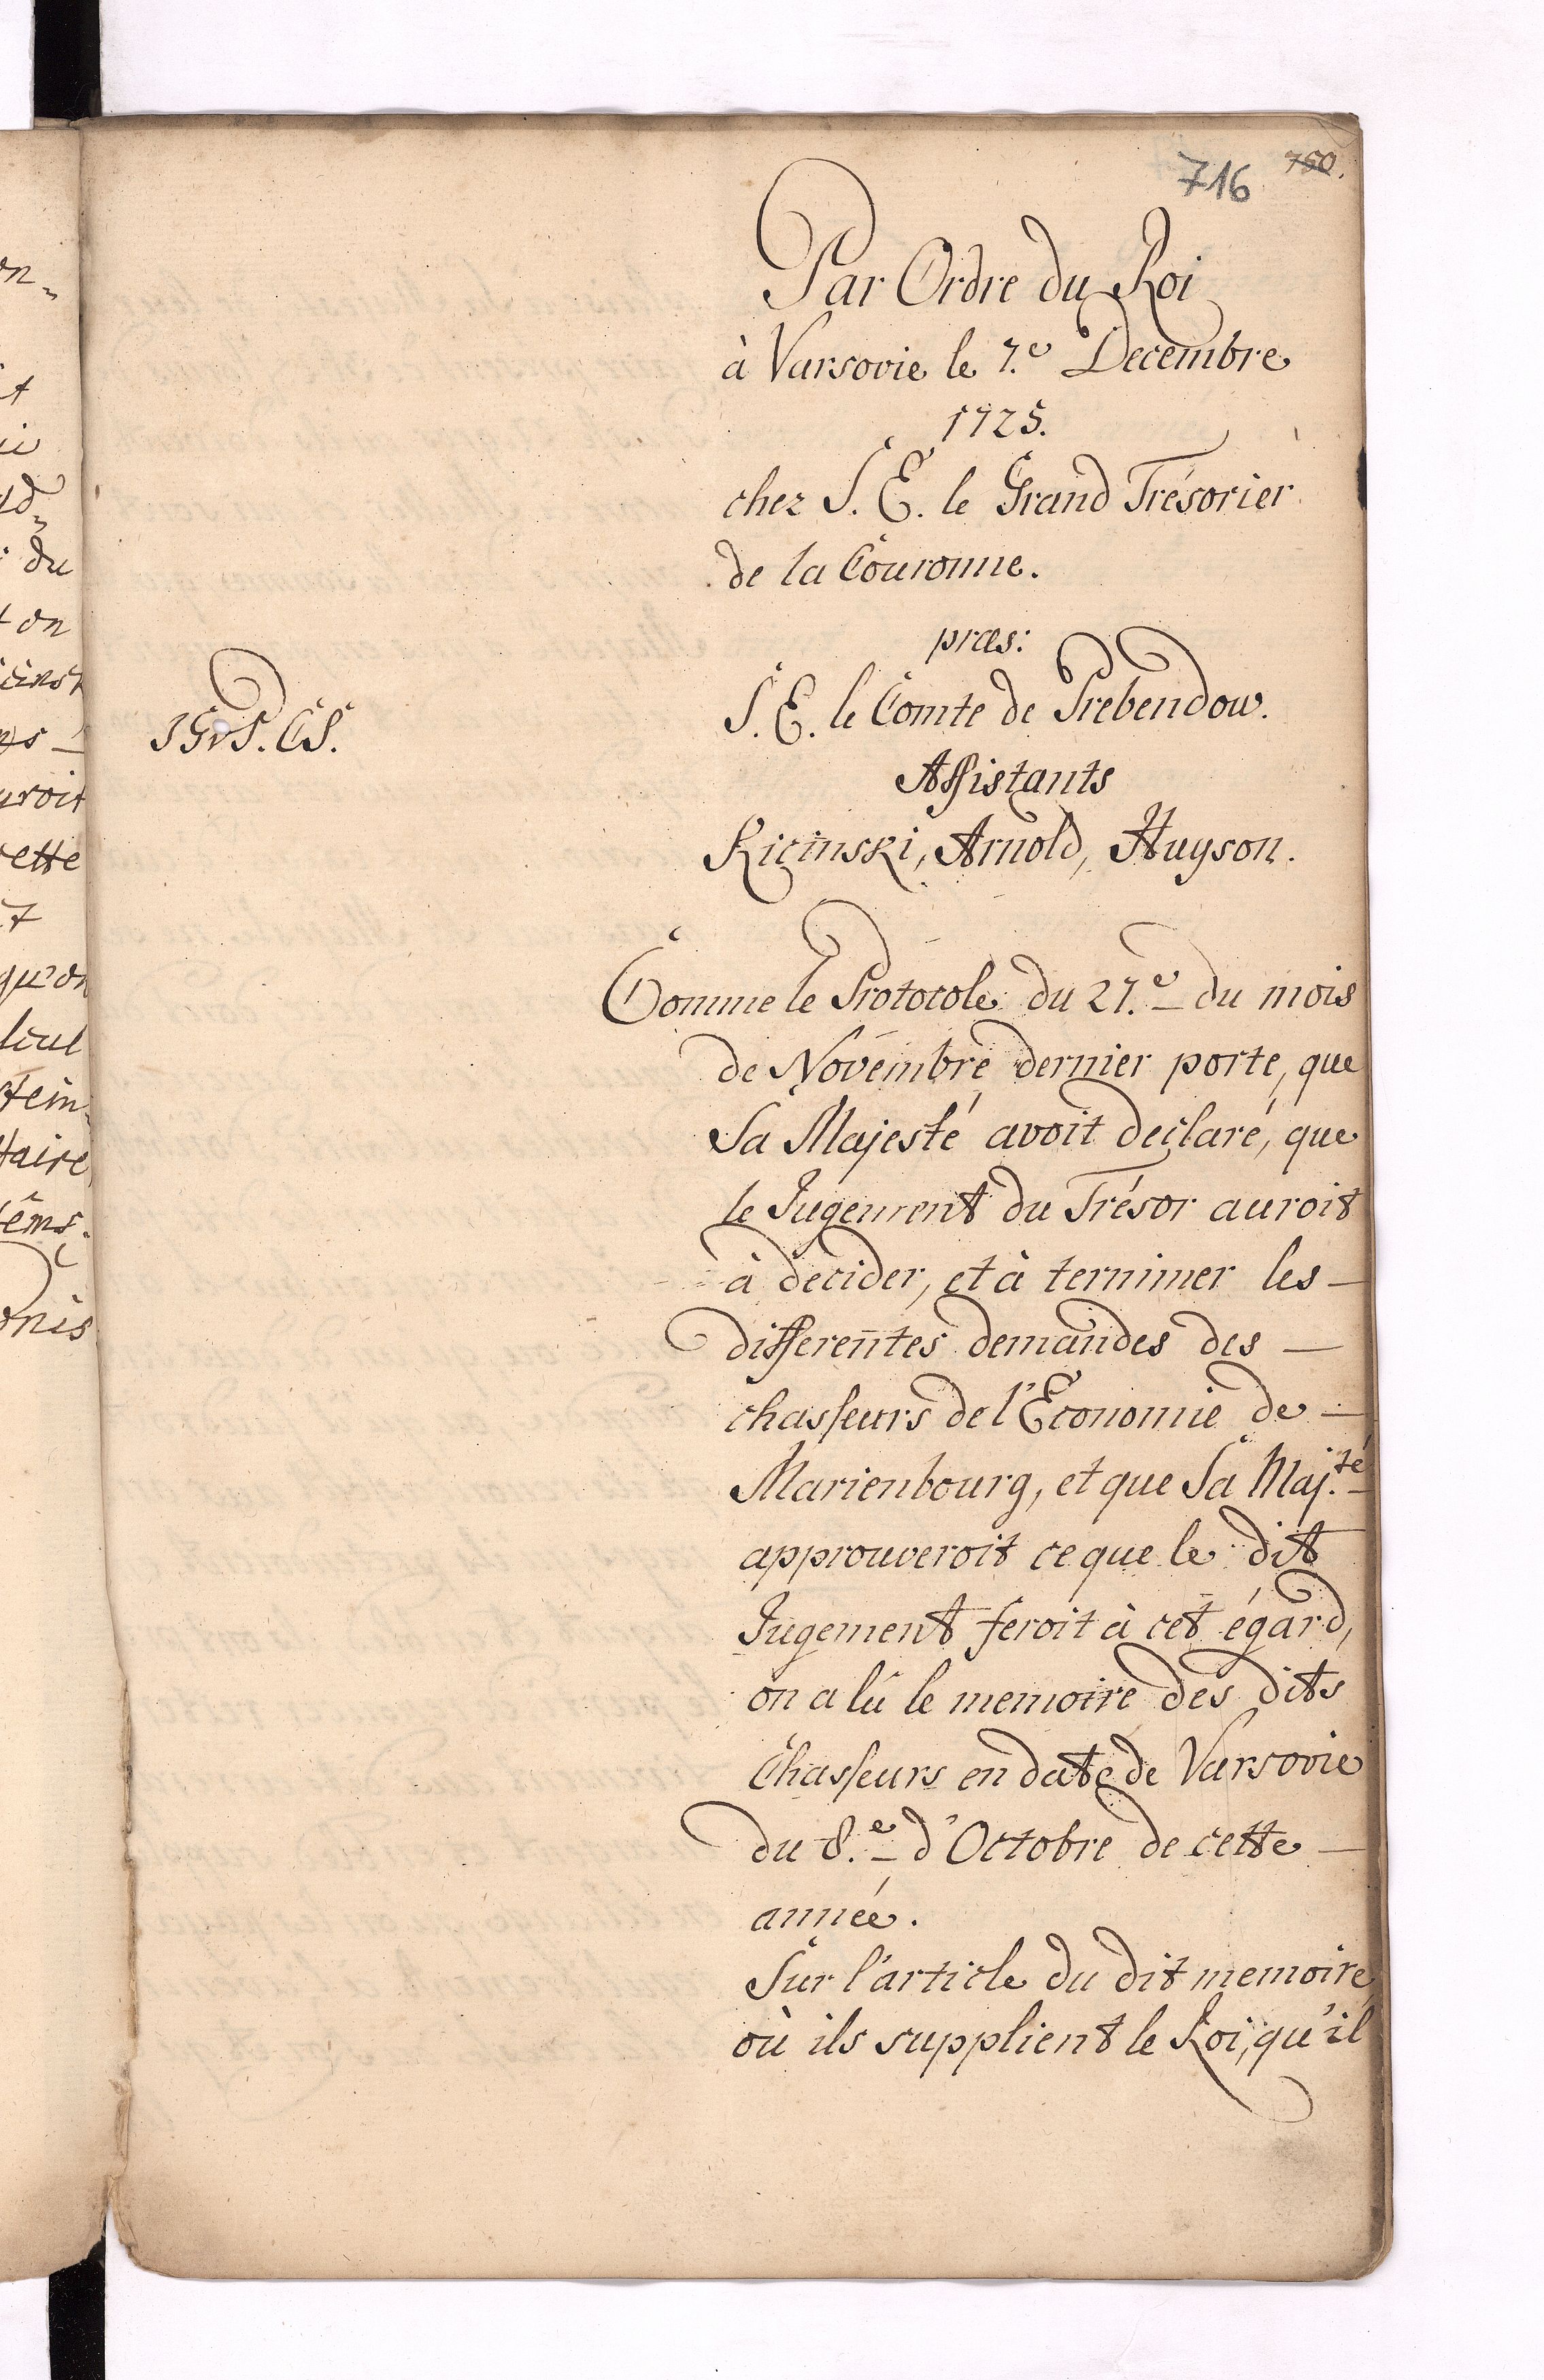 716 750.
Par Ordre du Roi
à Varsovie le 7.e Decembre
1725.
chez S. E. le Grand Trésorier
de la Couronne.
præs:
S. E. le Comte de Prebendow.
Assistants
Kicinski, Arnold, Huyson.
Comme le Protocole du 27.e du mois
de Novembre dernier porte, que
Sa Majesté avoit declaré, que
le Jugement du Trésor auroit
à decider, et à terminer les —
differentes demandes des —
chasseurs de l'Economie de —
Marienbourg, et que Sa Maj.té
approuveroit ce que le dit
Jugement feroit à cet égard,
on a lû le memoire des dits
Chasseurs en date de Varsovie
du 8.e d'Octobre de cette —
année.
Sur l'article du dit memoire
où ils supplient le Roi, qu'il